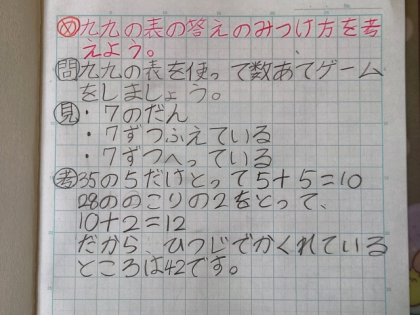 め 九九の表の答えのみつけ方を考
えよう。
問 九九の表を使って数あてゲーム
をしましょう。
見 ・7のだん
・7ずつふえている
・7ずつへっている
考 35の5だけとって5+5=10
28ののこりの2をとって、
10+2=12
だから、ひつじでかくれている
ところは42です。